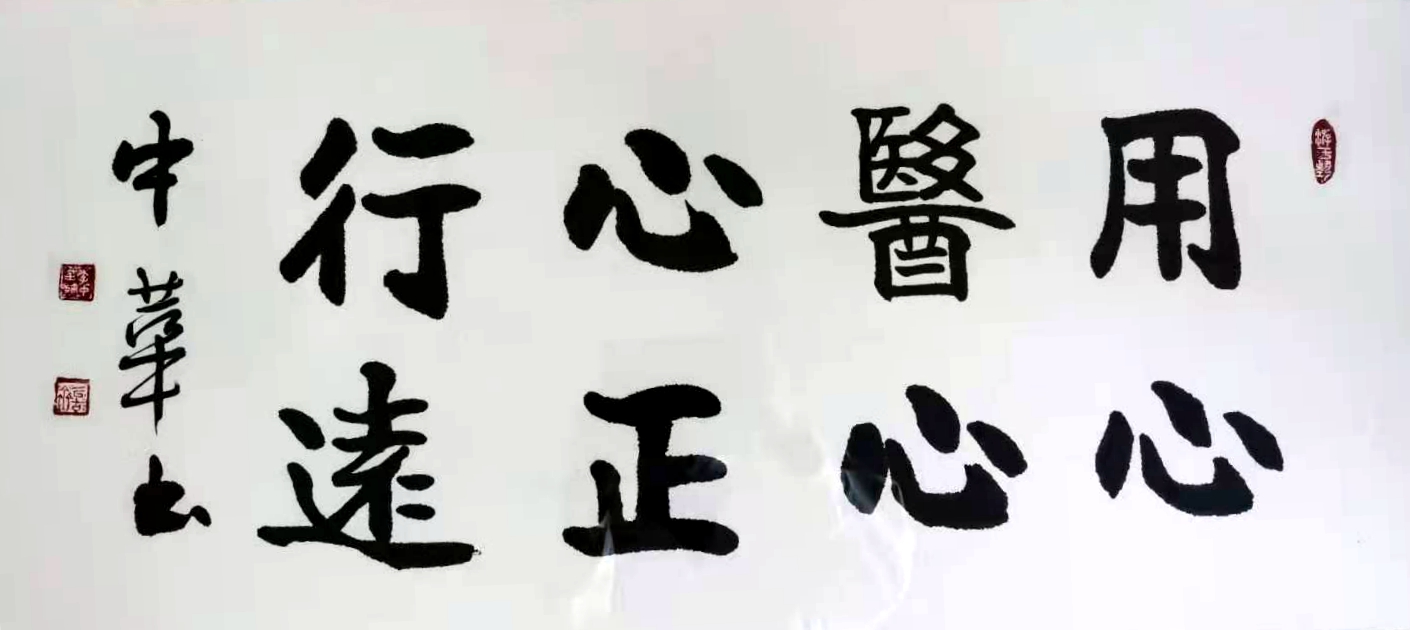 用心
醫心
心正
行遠
中華書